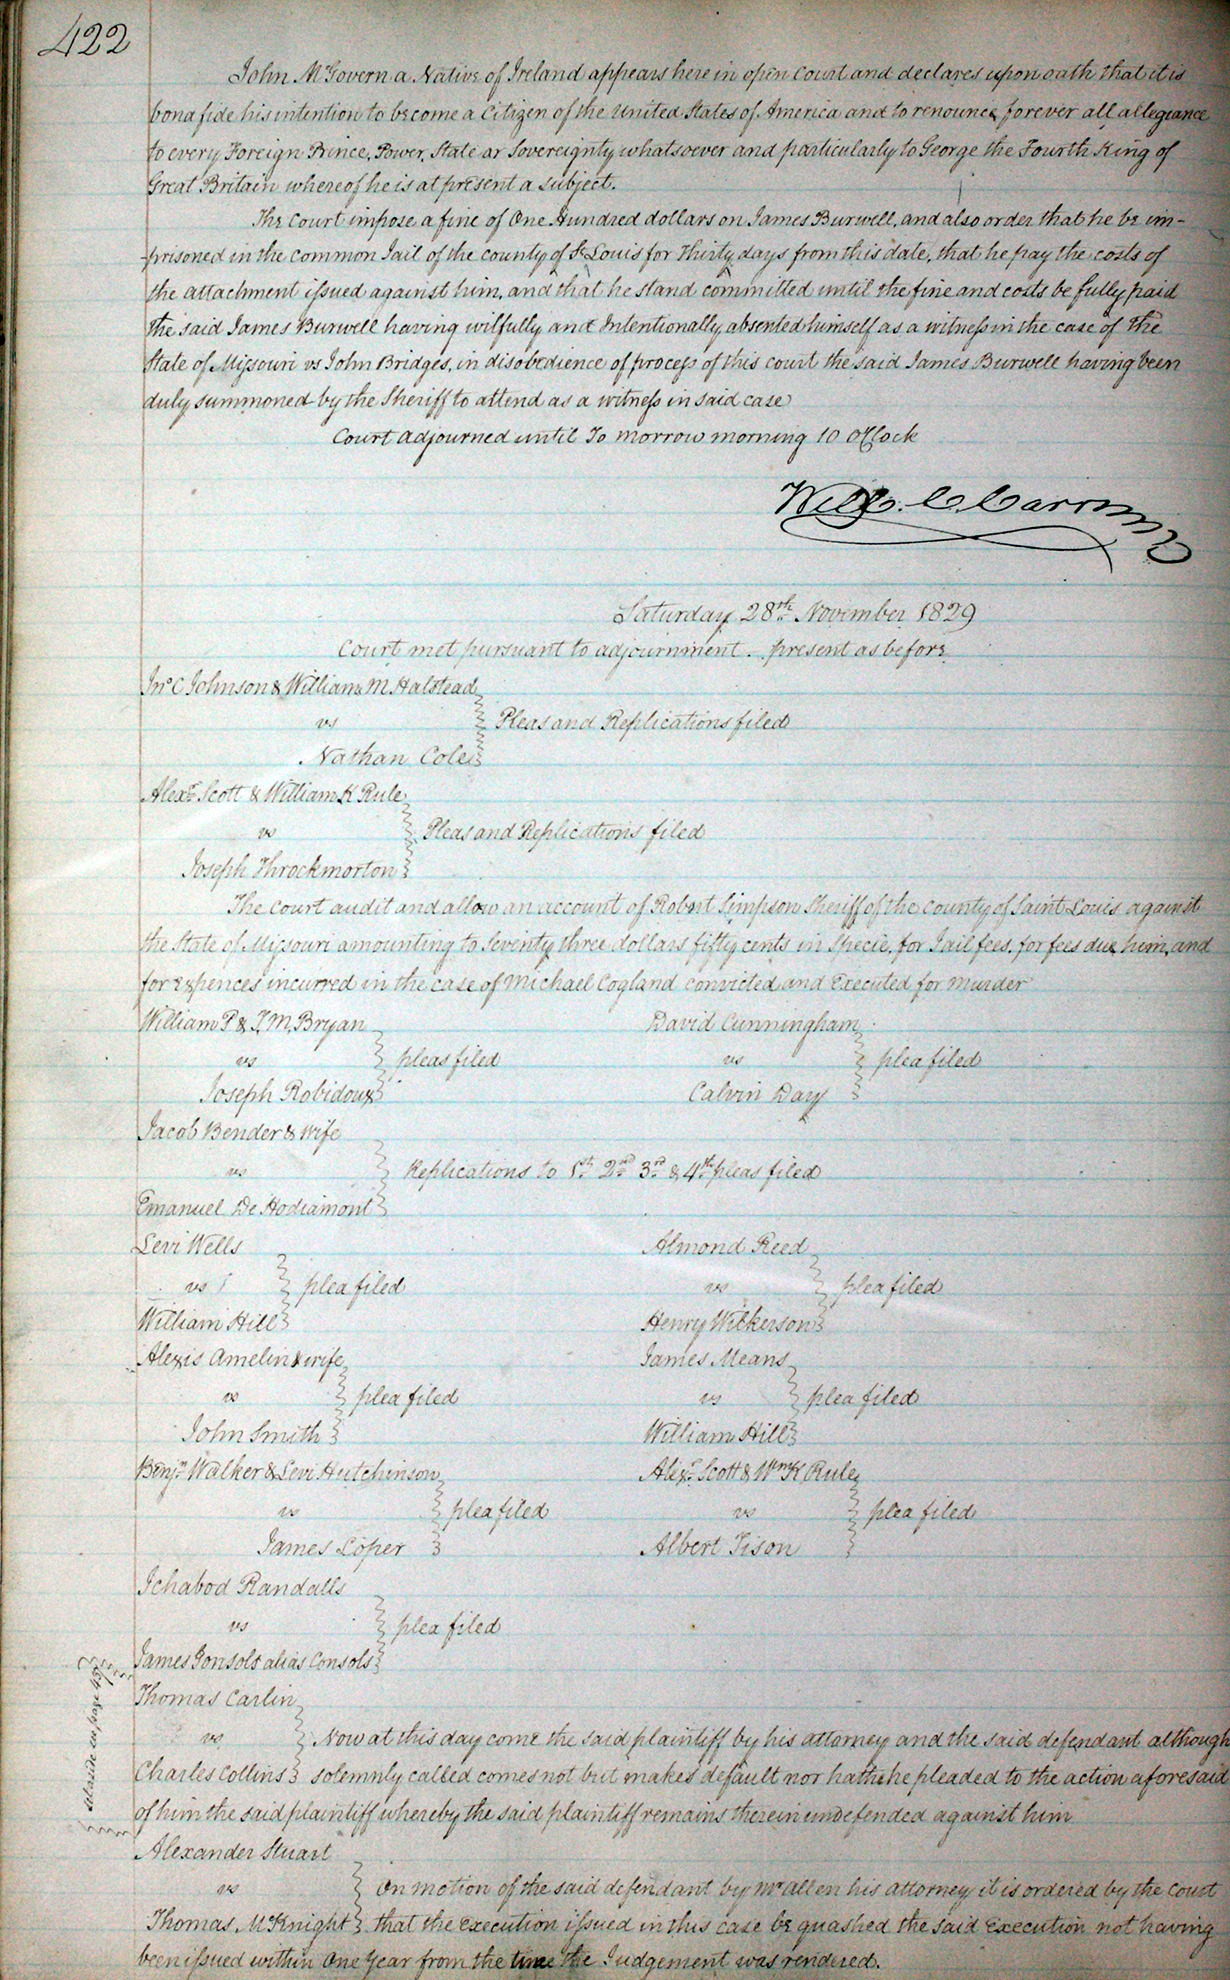 422
John McGovern a Native of Ireland appears here in open Court and declares upon oath that it is
bona fide his intention to become a Citizen of the United States of America and to renounce forever all allegiance
to every Foreign Prince, Power, State or Sovereignty whatsoever and particularly to George the Fourth King of
Great Britain whereof he is at present a subject.
The Court impose a fine of One Hundred dollars on James Burwell, and also order that he be im-
prisoned in the common Jail of the county of St Louis for Thirty days from this date, that he pay the costs of
the attachment issued against him, and that he stand committed until the fine and costs be fully paid
the said James Burwell having wilfully and Intentionally absented himself as a witness in the case of the
State of Missouri vs John Bridges, in disobedience of process of this court the said James Burwell having been
duly summoned by the Sheriff to attend as a witness in said case
Court adjourned until To morrow morning 10 OClock
Will. C. Carr
Saturday 28th November 1829
Court met pursuant to adjournment. present as before
Jno C Johnson & William M Halstead
vs
Pleas and Replications filed
Nathan Cole
Alexr Scott & William K Rule
vs
Pleas and Replications filed
Joseph Throckmorton
The Court audit and allow an account of Robert Simpson Sheriff of the County of Saint Louis against
the State of Missouri amounting to Seventy three dollars fifty cents in specie, for Jail fees, for fees due him, and
for expences incurred in the case of Michael Cogland convicted and Executed for Murder
William P & J M Bryan
vs
pleas filed
Joseph Robidoux
David Cunningham
vs
plea filed
Calvin Day
Jacob Bender & wife
vs
Replications to 1st 2nd 3rd & 4th pleas filed
Emanuel De Hodiamont
Levi Wells
vs
plea filed
William Hill
Almond Reed
vs
plea filed
Henry Wilkerson
Alexis Amelin & wife
vs
plea filed
John Smith
James Means
vs
plea filed
William Hill
Benjn Walker & Levi Hutchinson
vs
plea filed
James Loper
Alexr Scott & Wm K Rule
vs
plea filed
Albert Tison
Ichabod Randalls
vs
plea filed
James Gonsolt alias Consols
set aside see page
Thomas Carlin
vs
Now at this day come the said plaintiff by his attorney and the said defendant although
Charles Collins solemnly called comes not but makes default nor hath he pleaded to the action aforesaid
of him the said plaintiff whereby the said plaintiff remains therein undefended against him
Alexander Stuart
vs
On motion of the said defendant by Mr Allen his attorney it is ordered by the Court
Thomas McKnight that the Execution issued in this case be quashed the said Execution not having
been issued within One Year from the time the Judgement was rendered.